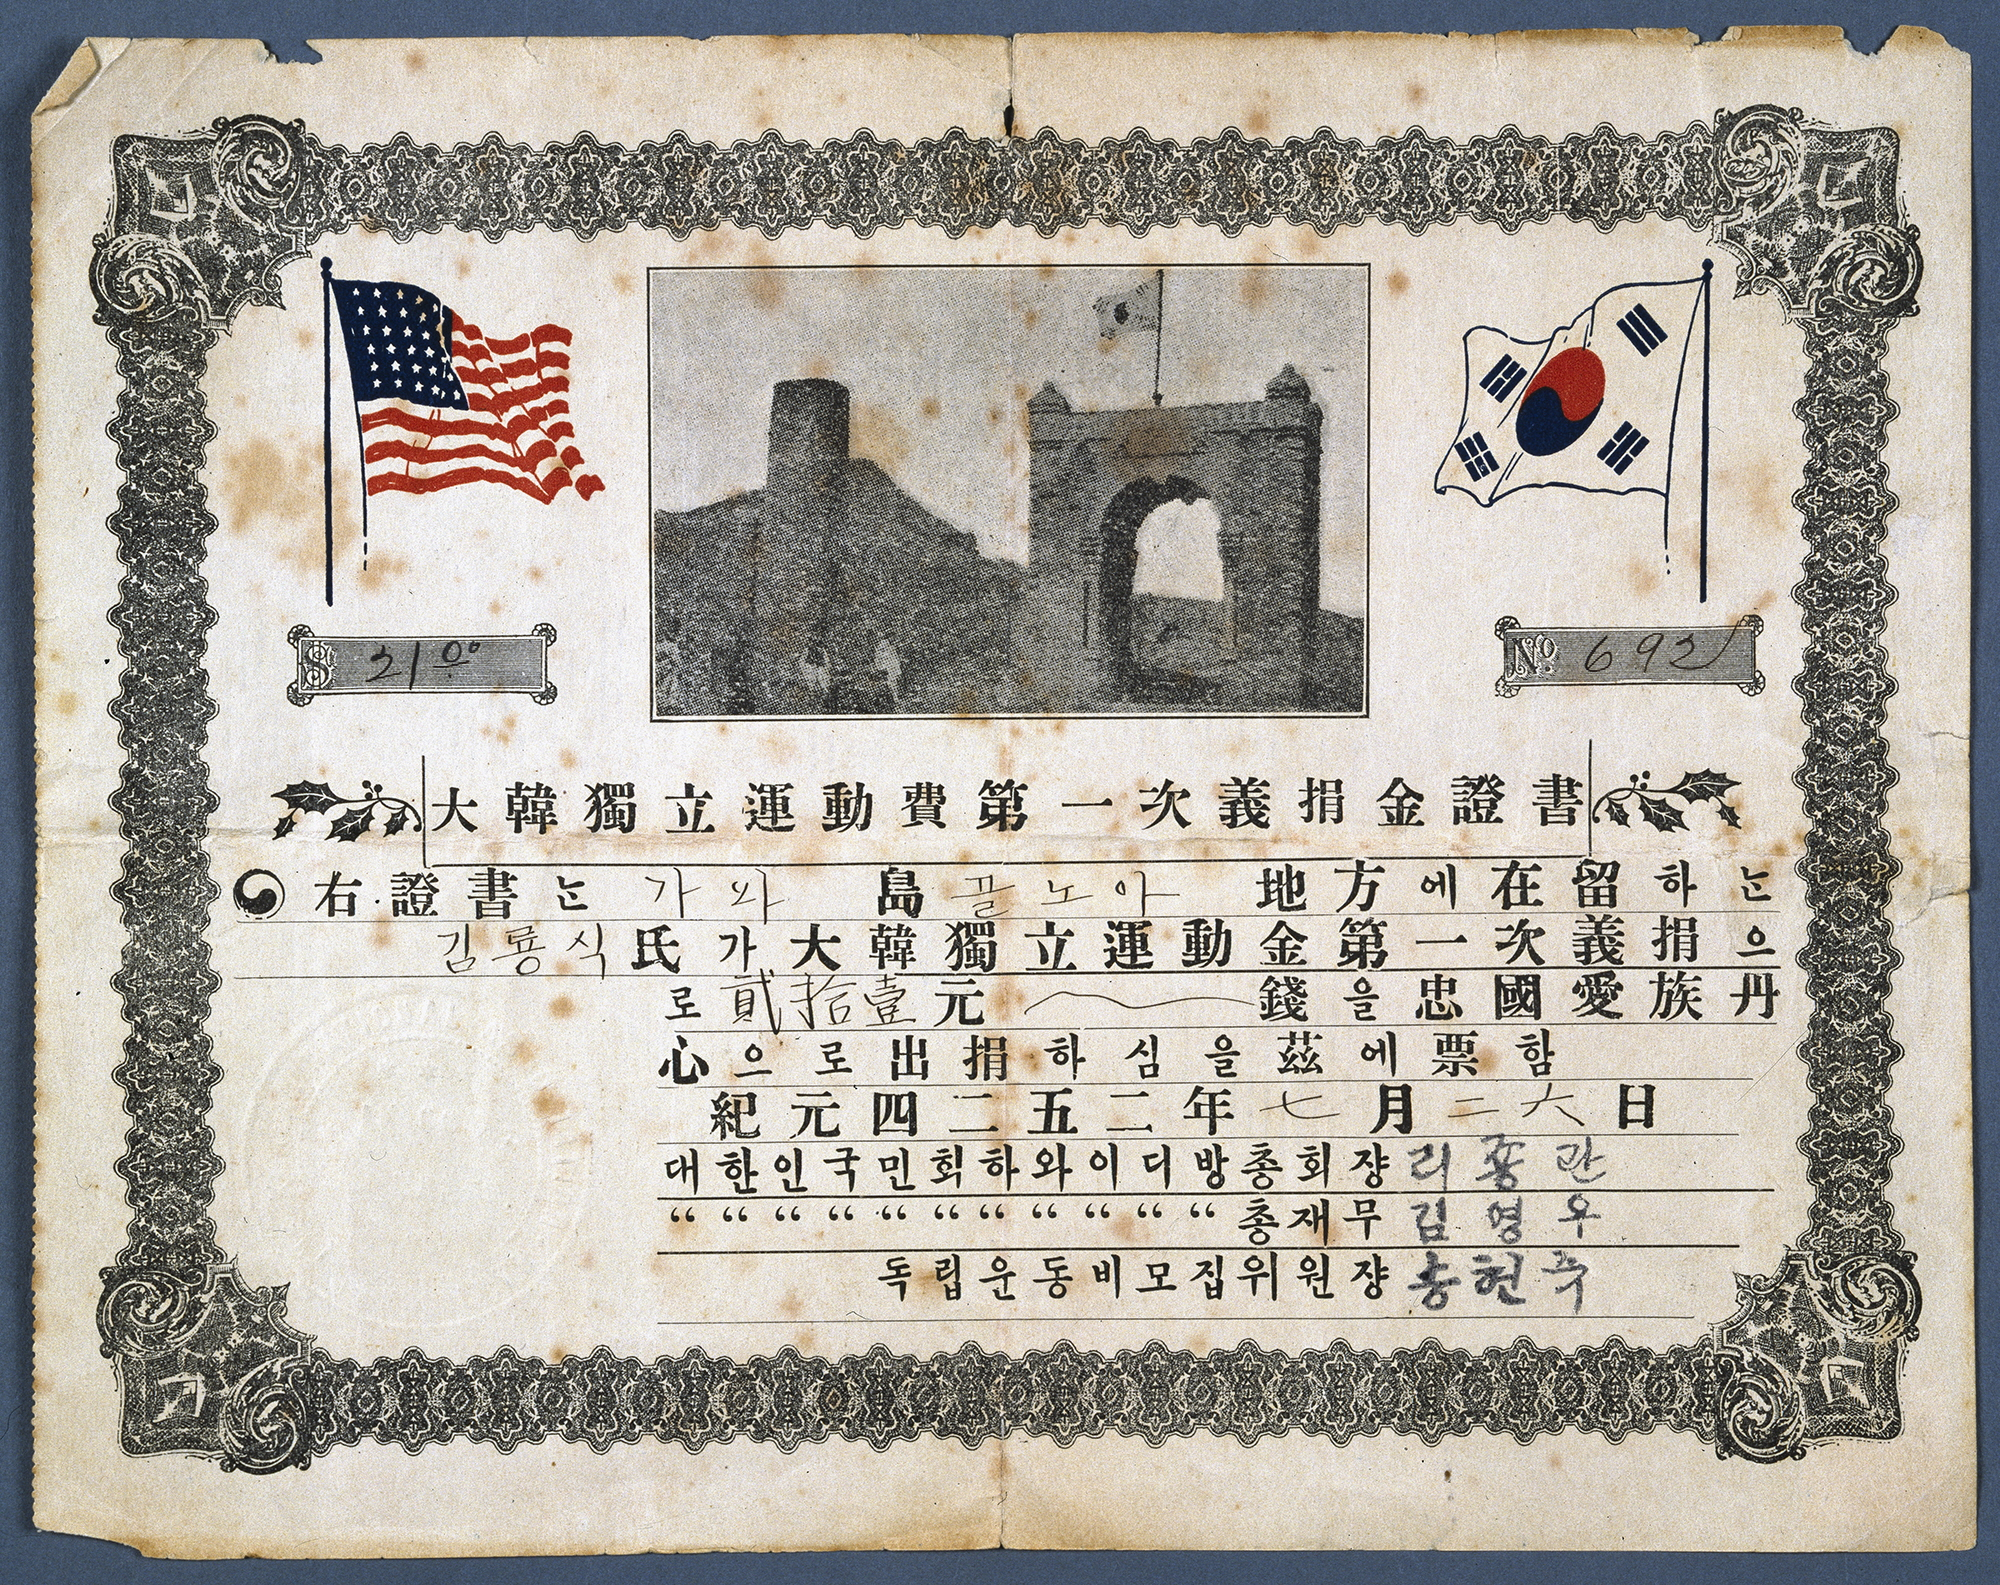 $ 21.00
No. 692
大韓獨立運動費第一次義捐金證書
右證書는 가와 島 플노아 地方에 在留하는
김룡식 氏가 大韓獨立運動金第一次義捐으
로 貳拾壹元 錢을 忠國愛族丹
心으로 出捐하심을 茲에 票함
紀元四二五二年 七月 二六日
대한인국민회하와이디방총회쟝 리종관
“ “ “ “ “ “ “ “ “ “ “ 총재무 김영우
독립운동비모집위원쟝 송헌주